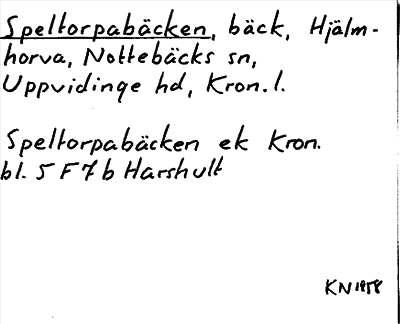 Speltorpabäcken, bäck, Hjälm-
horva, Nottebäcks sn,
Uppvidinge hd, Kron. l.
Speltorpabäcken ek Kron.
bl. 5 F 7 b Harshult
KN 1958